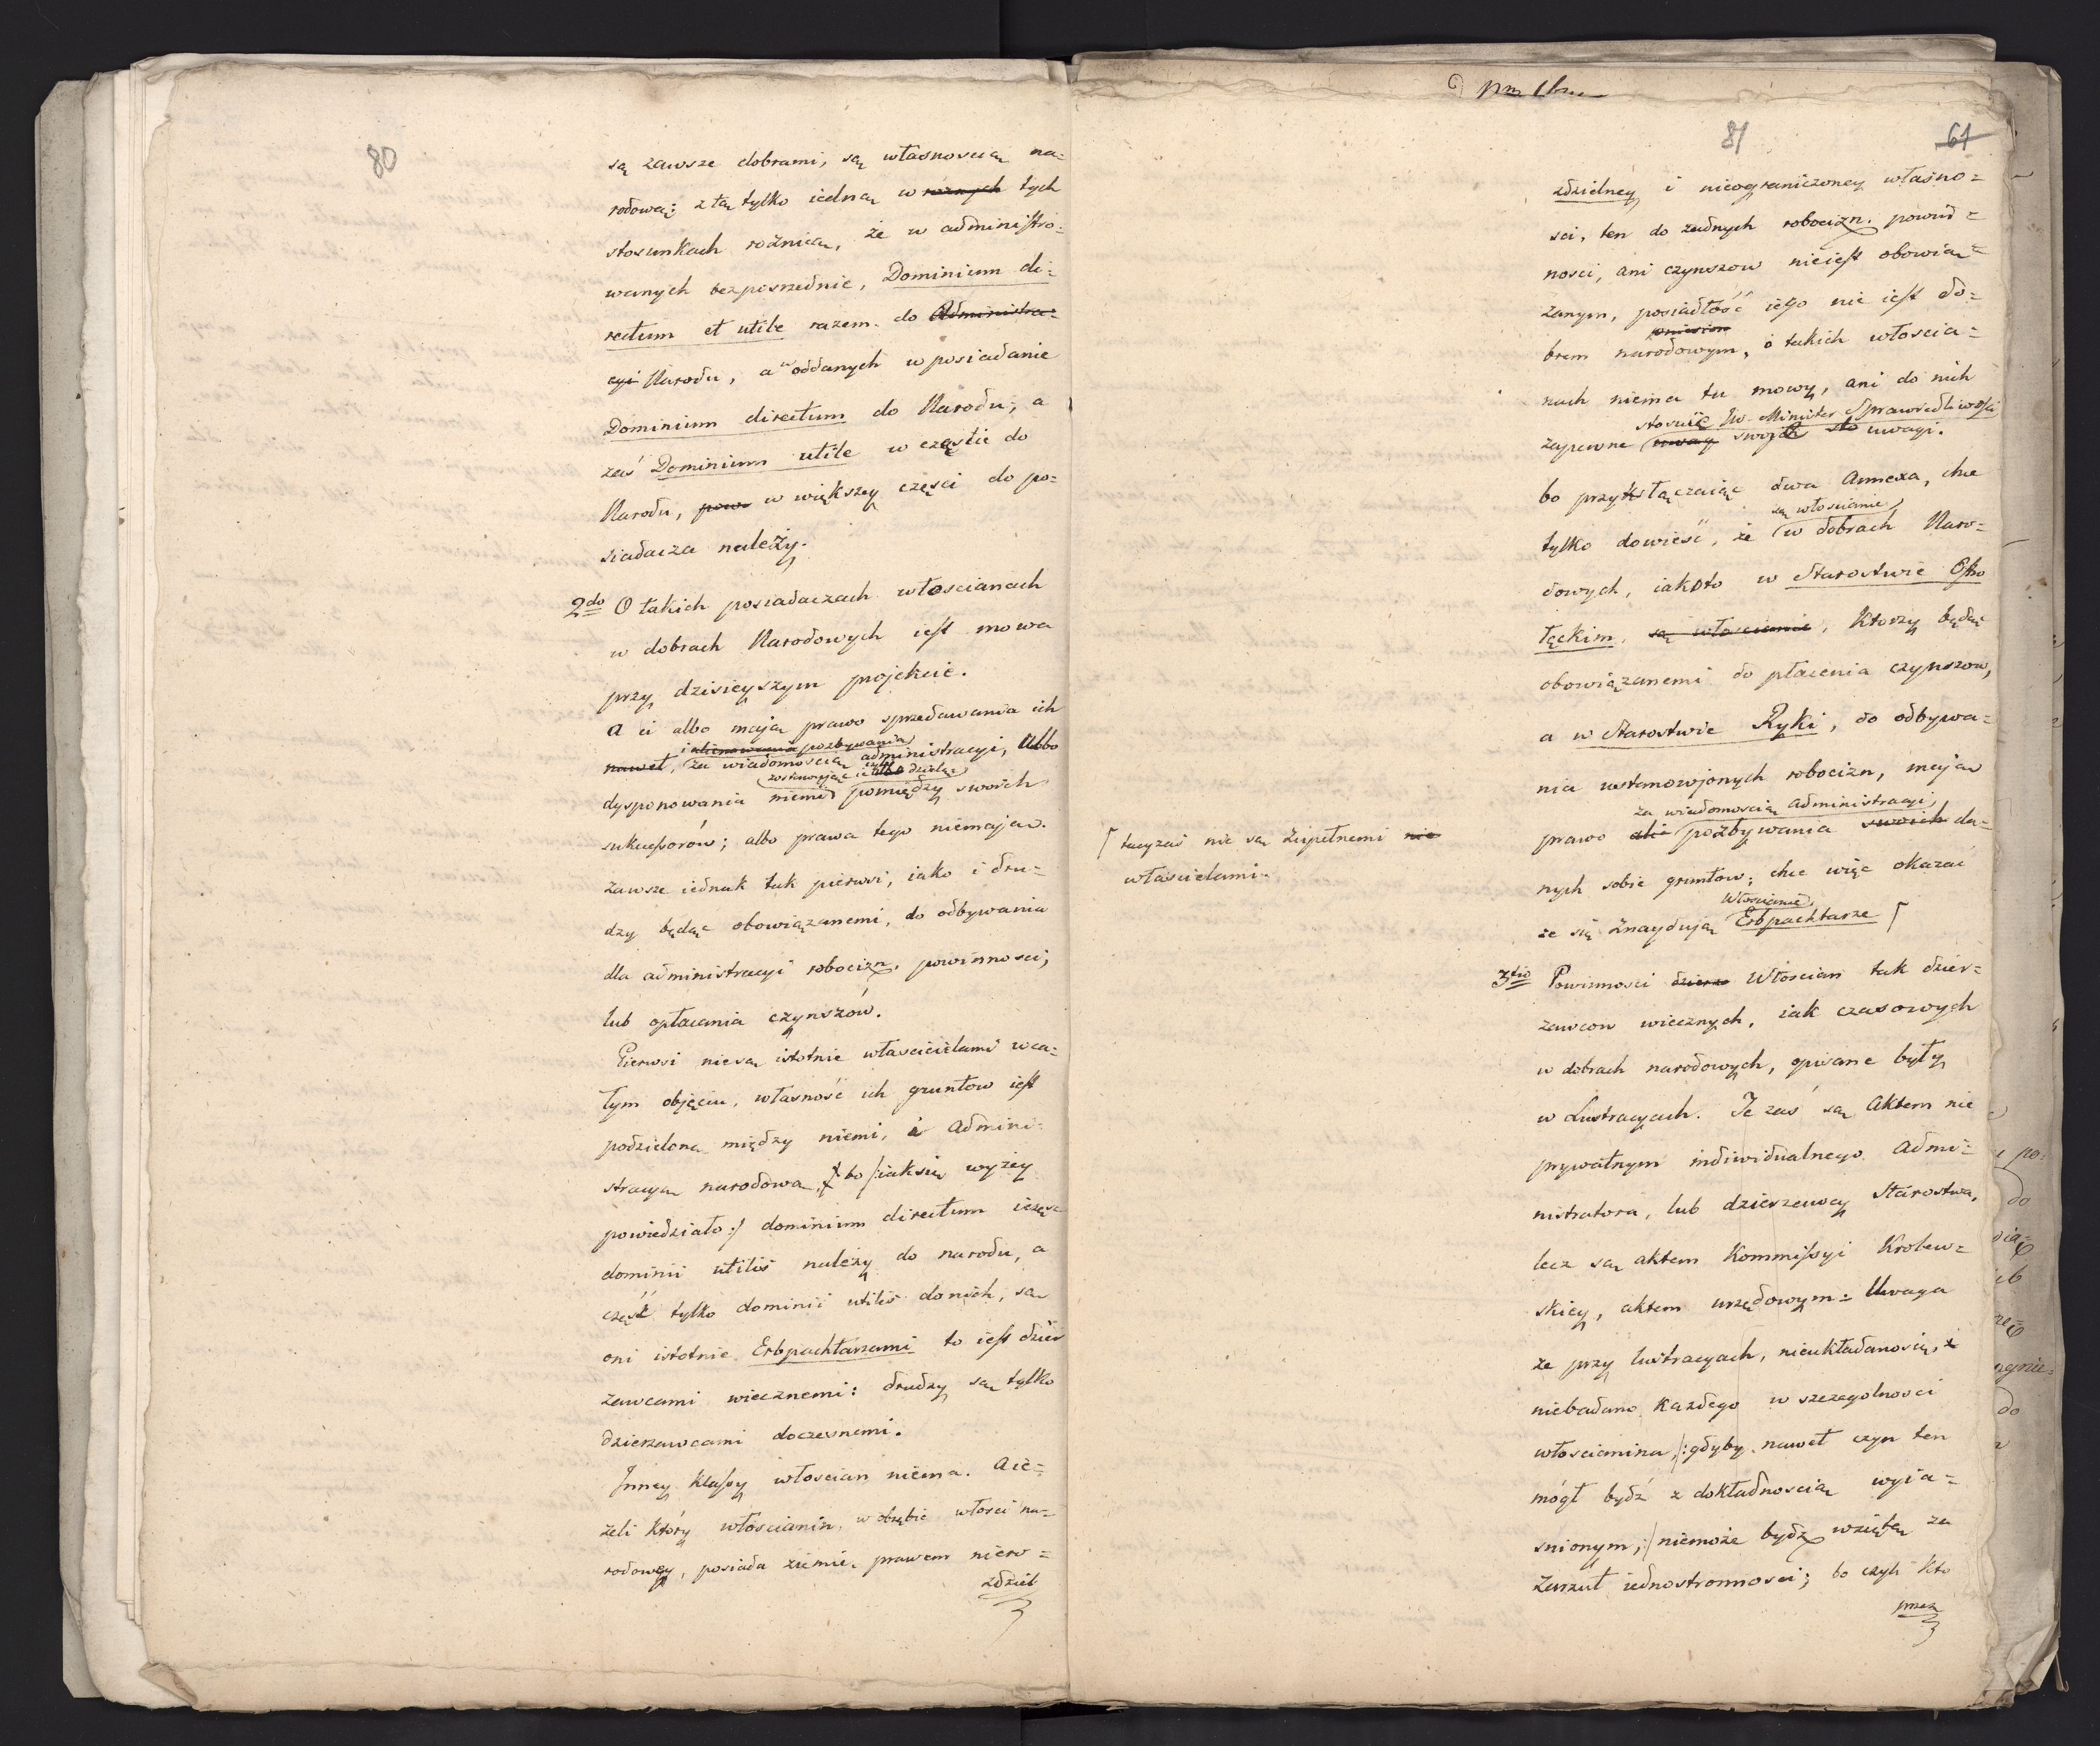 80
są zawsze dobrami, są własnoscią na=
rodową: z tą tylko iedną w roznych tych
stosunkach rożnicą, że w administro=
wanych bezposrzednie, Dominium di=
rectum et utile razem do Administra=
cyi Narodu, a w oddanych w posiadanie
Dominium directum do Narodu; a
zaś Dominium utile w części do
Narodu, powi w większey częsci do po=
siadacza należy.
2do O takich posiadaczach włoscianach
w dobrach Narodowych iest mowa
przy dzisieyszym projekcie.
a ci albo mają prawo sprzedawania ich
i alienowania pozbywania
nawet, za wiadomoscią administracyi, Albo
zostawując ie albo dzieląc
dysponowania niemi pomiędzy swoich
sukcessorów; albo prawa tego niemają.
zawsze iednak tak pierwsi, iako i dru=
dzy będąc obowiązanemi, do odbywania
dla administracyi robocizn, powinnosci,
lub opłacania czynszów.
Pierwsi niesą istotnie właścicielami w ca=
łym objęciu, własność ich gruntow iest
podzielona między niemi, i Admini=
stracyą narodową, bo /:iak się wyżey
powiedziało:/ dominium directum i część
dominii utilis należy do narodu, a
część tylko dominii utilis do nich, są
oni istotnie Erbpachtarzami to iest dzier
żawcami wiecznemi: drudzy są tylko
dzierzawcami doczesnemi.
Inney klassy włoscian niema. a ie=
żeli który włoscianin, w obrębie włosci na=
rodowey, posiada ziemię prawem niero=
zdziel
81
61
zdzielney i nieograniczoney własno=
sci, ten do żadnych robocizn, powin=
nosci, ani czynszow nieiest obowią=
zanym, posiadłość iego nie iest do=
brem narodowym, o takich włoscia=
nach niema tu mowy, ani do nich
stosuie JW. Minister Sprawiedliwości
zapewne uwag swoich sto uwagi.
bo przyłączaiąc dwa Annexa, chce
są włoscianie
tylko dowieść, że w dobrach Naro=
dowych, iakoto w Starostwie Osto
łęckim, są włoscianie, ktorzy będąc
obowiązanemi do płacenia czynszow,
a w Starostwie Ryki, do odbywa=
nia ustanowionych robocizn, maią
za wiadomoscią administracyi
prawo ali pozbywania swoich da=
nych sobie gruntow; chce więc okazać
Włoscianie
że się znayduią Erbpachtarze
tacy zaś nie są zupełnemi nie
właścicielami.
3tio Powinnosci dzierz Włoscian tak dzier=
żawcow wiecznych, iak czasowych
w dobrach narodowych, opisane były
w Lustracyach. Te zaś są Aktem nie
prywatnym indiwidualnego Admi=
nistratora, lub dzierzawcy Starostwa,
lecz są aktem Kommissyi Krolew=
skiey, aktem urzędowym: Uwaga
że przy lustracyach, nieukładano się, i
niebadano każdego w szczegolnosci
włoscianina, /:gdyby nawet czyn ten
mógł bydź z dokładnoscią wyia=
snionym,:/ niemoże bydź wziętą za
Zarzut iednostronnosci; bo czyli kto
przez